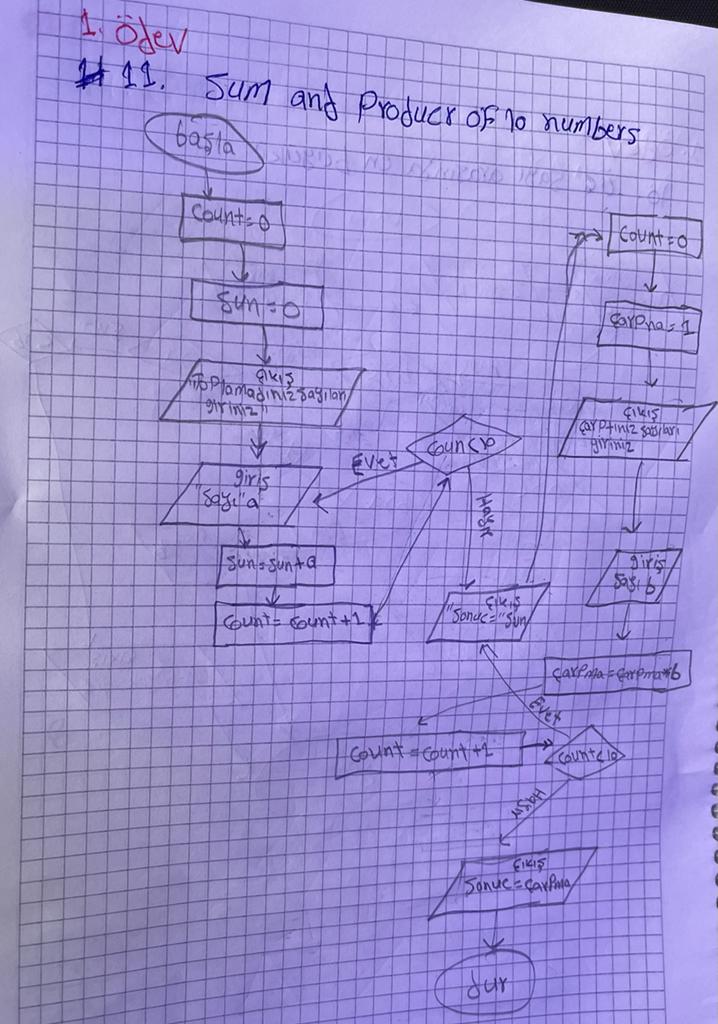 1. Ödev
11. Sum and Producr of 10 numbers
başla
Count=0
Sun=0
Çıkış
"Toplamadınız sayıları
giriniz"
giriş
"Sayı"a
Sun=sun+a
Count=Count+1
Coun<10
Evet
Hayır
Çıkış
"Sonuc="Sun
Count=0
Çarpma=1
Çıkış
Çarptınız sayıları
giriniz
giriş
Sayı b
Çarpma=Çarpma*b
Count=Count+1
Count<10
Evet
Hayır
Çıkış
Sonuc=Çarpma
dur